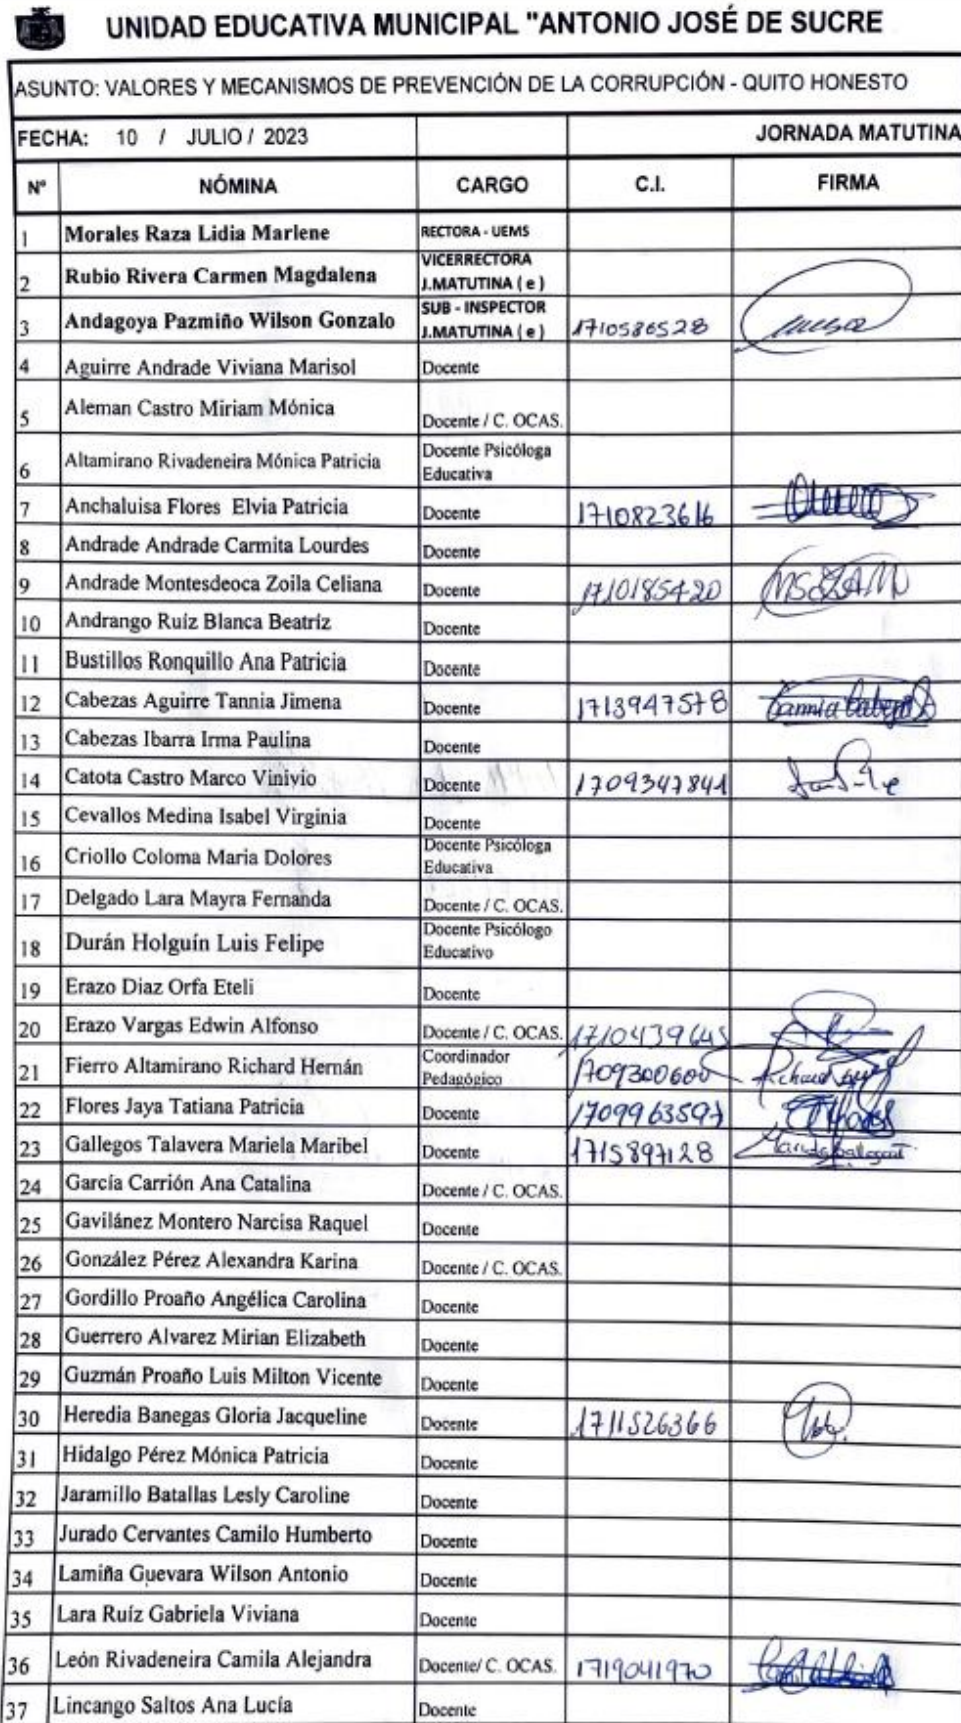 UNIDAD EDUCATIVA MUNICIPAL "ANTONIO JOSÉ DE SUCRE
ASUNTO: VALORES Y MECANISMOS DE PREVENCIÓN DE LA CORRUPCIÓN - QUITO HONESTO
FECHA: 10 / JULIO / 2023 JORNADA MATUTINA
Nº NÓMINA CARGO C.I. FIRMA
1 Morales Raza Lidia Marlene RECTORA - UEMS
2 Rubio Rivera Carmen Magdalena VICERRECTORA J.MATUTINA ( e )
3 Andagoya Pazmiño Wilson Gonzalo SUB - INSPECTOR J.MATUTINA ( e ) 1710586528
4 Aguirre Andrade Viviana Marisol Docente
5 Aleman Castro Miriam Mónica Docente / C. OCAS.
6 Altamirano Rivadeneira Mónica Patricia Docente Psicóloga Educativa
7 Anchaluisa Flores Elvia Patricia Docente 1710823616
8 Andrade Andrade Carmita Lourdes Docente
9 Andrade Montesdeoca Zoila Celiana Docente 1710185420
10 Andrango Ruíz Blanca Beatríz Docente
11 Bustillos Ronquillo Ana Patricia Docente
12 Cabezas Aguirre Tannia Jimena Docente 1713947578
13 Cabezas Ibarra Irma Paulina Docente
14 Catota Castro Marco Vinivio Docente 1709347841
15 Cevallos Medina Isabel Virginia Docente
16 Criollo Coloma Maria Dolores Docente Psicóloga Educativa
17 Delgado Lara Mayra Fernanda Docente / C. OCAS.
18 Durán Holguín Luis Felipe Docente Psicólogo Educativo
19 Erazo Diaz Orfa Eteli Docente
20 Erazo Vargas Edwin Alfonso Docente / C. OCAS. 1710439645
21 Fierro Altamirano Richard Hernán Coordinador Pedagógico 1709300600
22 Flores Jaya Tatiana Patricia Docente 1709963597
23 Gallegos Talavera Mariela Maribel Docente 1715897128
24 García Carrión Ana Catalina Docente / C. OCAS.
25 Gavilánez Montero Narcisa Raquel Docente
26 González Pérez Alexandra Karina Docente / C. OCAS.
27 Gordillo Proaño Angélica Carolina Docente
28 Guerrero Alvarez Mirian Elizabeth Docente
29 Guzmán Proaño Luis Milton Vicente Docente
30 Heredia Banegas Gloria Jacqueline Docente 1711526366
31 Hidalgo Pérez Mónica Patricia Docente
32 Jaramillo Batallas Lesly Caroline Docente
33 Jurado Cervantes Camilo Humberto Docente
34 Lamiña Guevara Wilson Antonio Docente
35 Lara Ruíz Gabriela Viviana Docente
36 León Rivadeneira Camila Alejandra Docente/ C. OCAS. 1719041970
37 Lincango Saltos Ana Lucía Docente